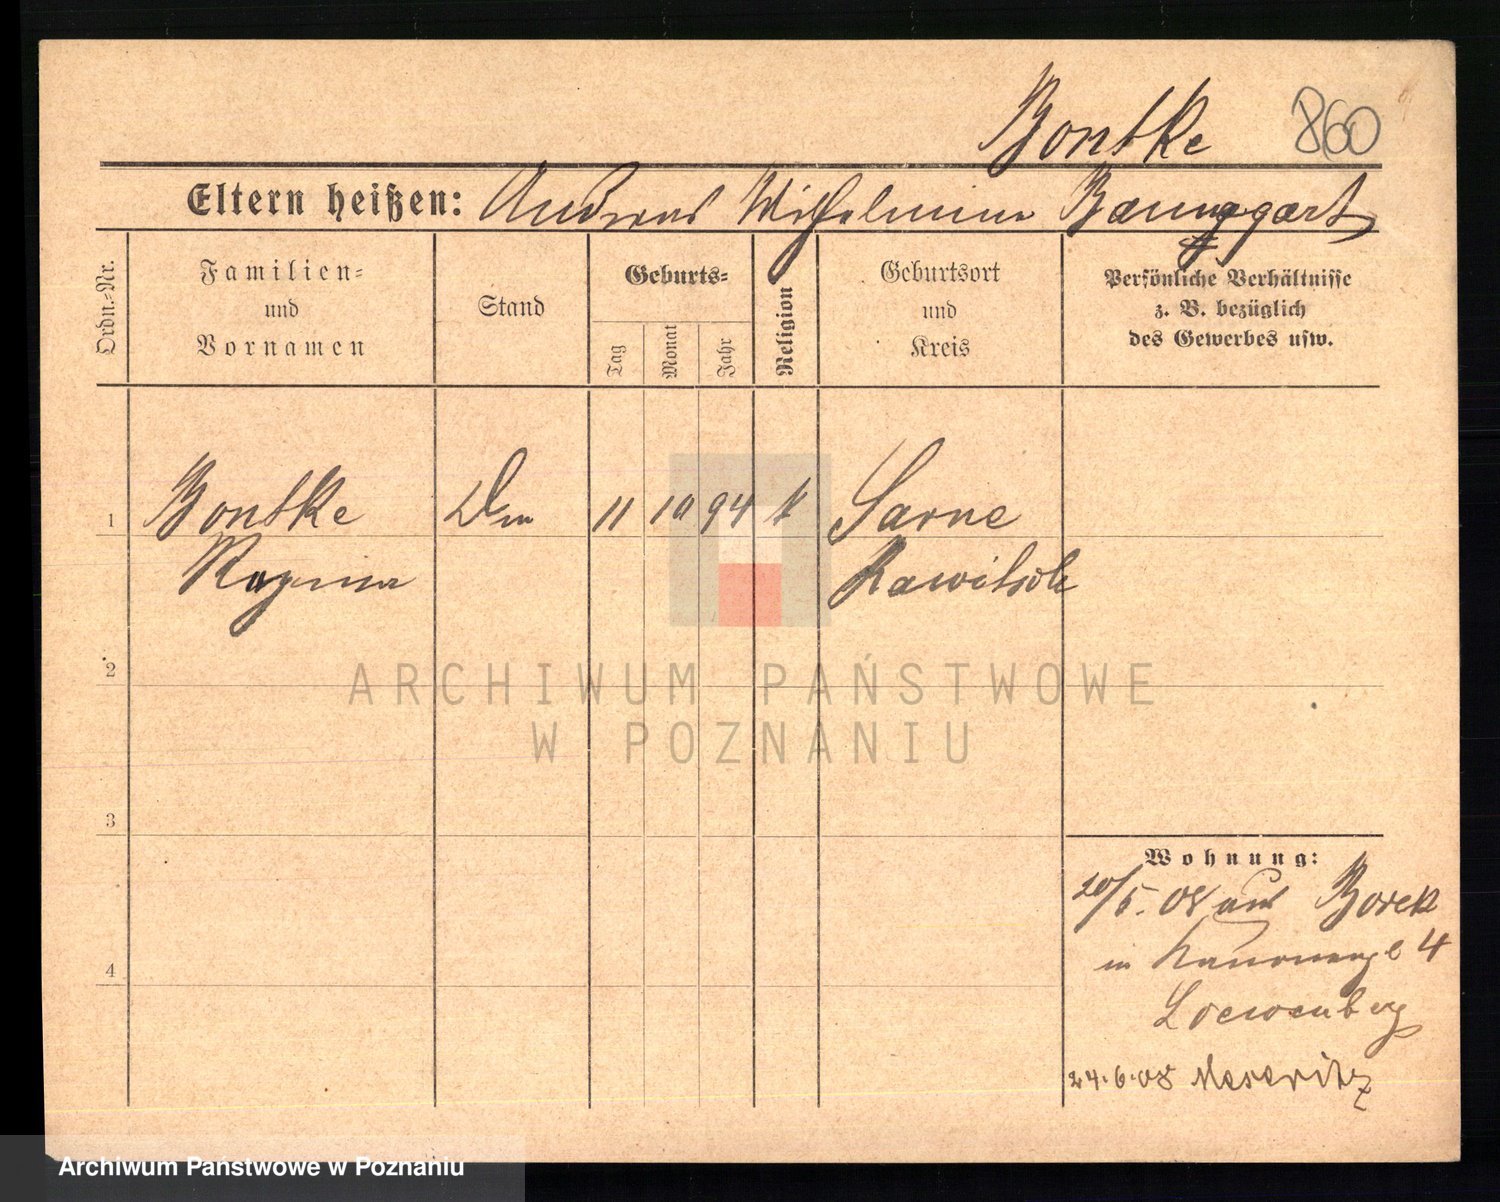 Bontke 860
Eltern heißen: Andreas Wilhelmine Baumgart
Ordn.-Nr.
Familien-
und
Vornamen
Stand
Geburts-
Tag
Monat
Jahr
Religion
Geburtsort
und
Kreis
Persönliche Verhältnisse
z. B. bezüglich
des Gewerbes usw.
1 Bontke 11 10 94 k Sarne
Rawitsch
2
3
4
Wohnung:
20/5. 08 aus Borek
in 4
Loewenberg
24.6.08 Meseritz
ARCHIWUM PAŃSTWOWE
W POZNANIU
Archiwum Państwowe w Poznaniu